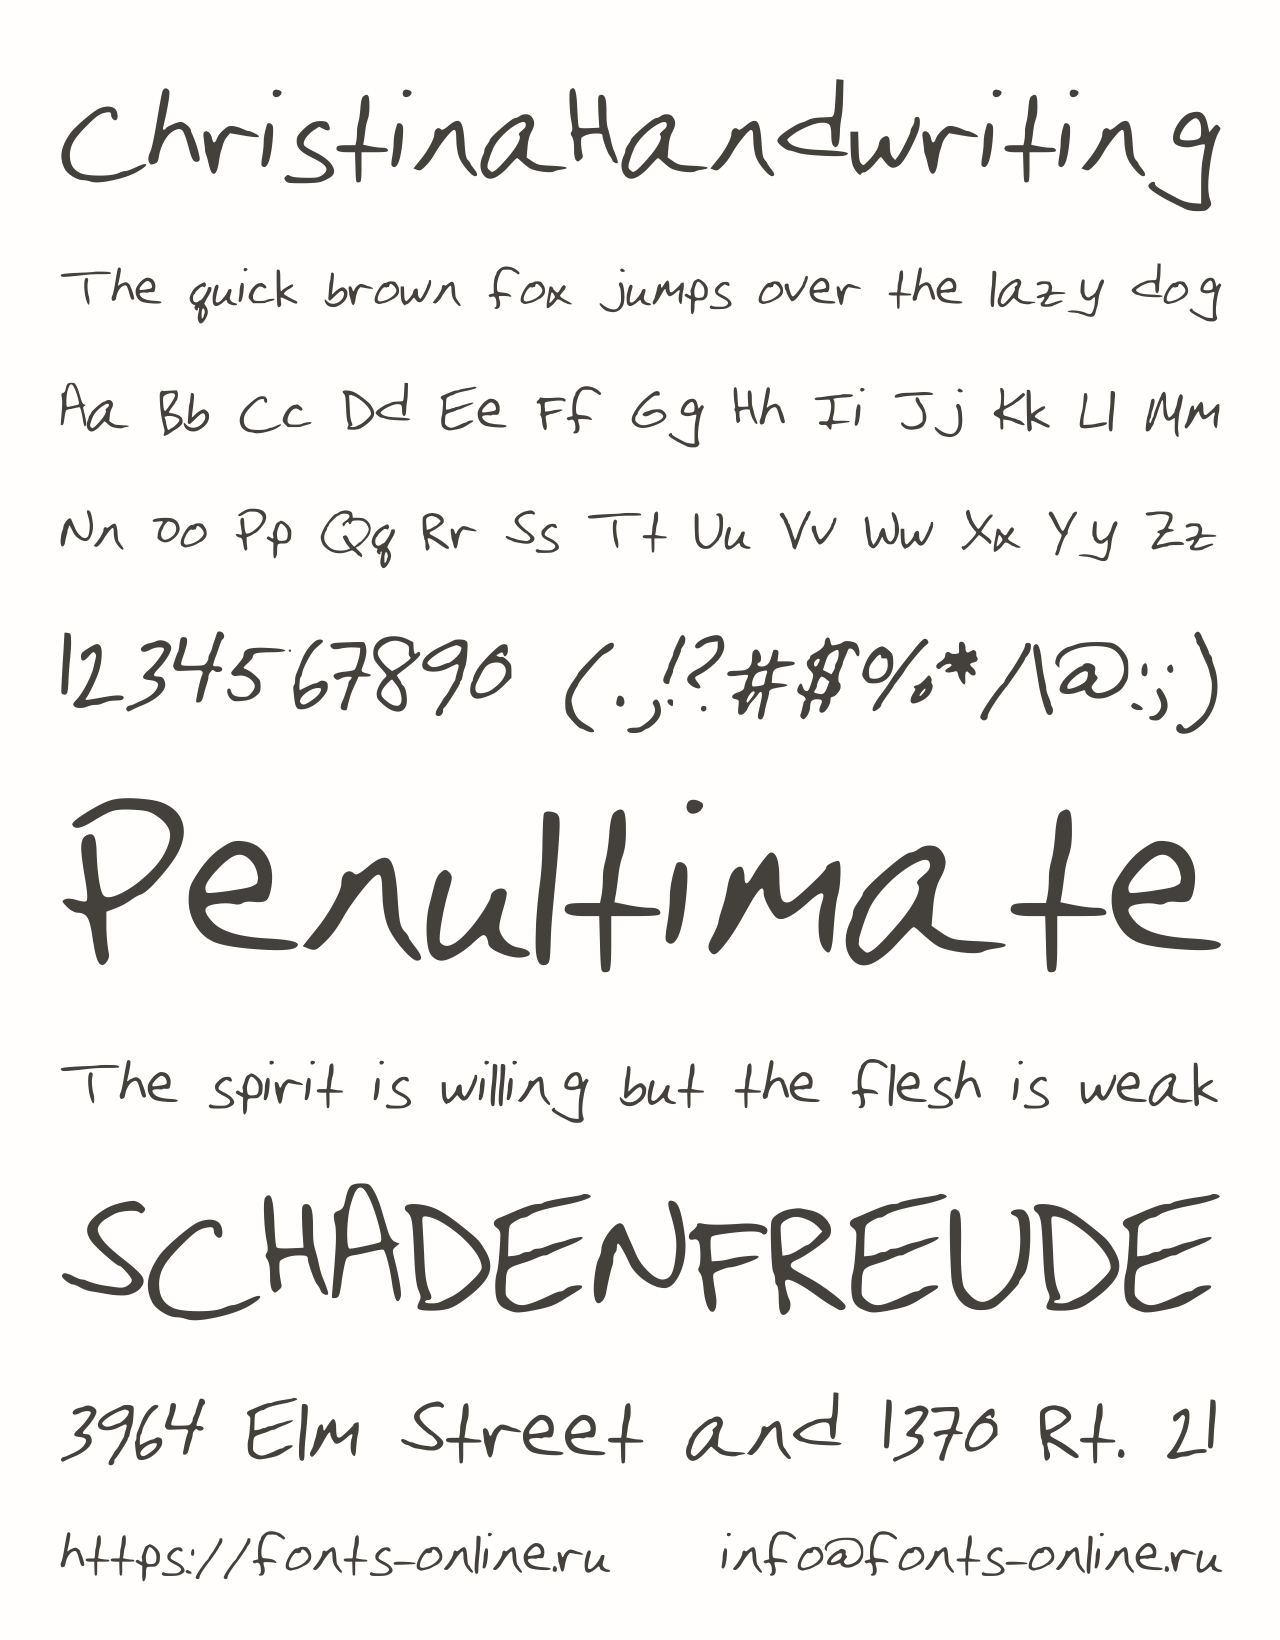 ChristinaHandwriting
The quick brown fox jumps over the lazy dog
Aa Bb Cc Dd Ee Ff Gg Hh Ii Jj Kk Ll Mm
Nn Oo Pp Qq Rr Ss Tt Uu Vv Ww Xx Yy Zz
1234567890 (.,!?#$%*/\@:;)
Penultimate
The spirit is willing but the flesh is weak
SCHADENFREUDE
3964 Elm Street and 1370 Rt. 21
https://fonts-online.ru info@fonts-online.ru